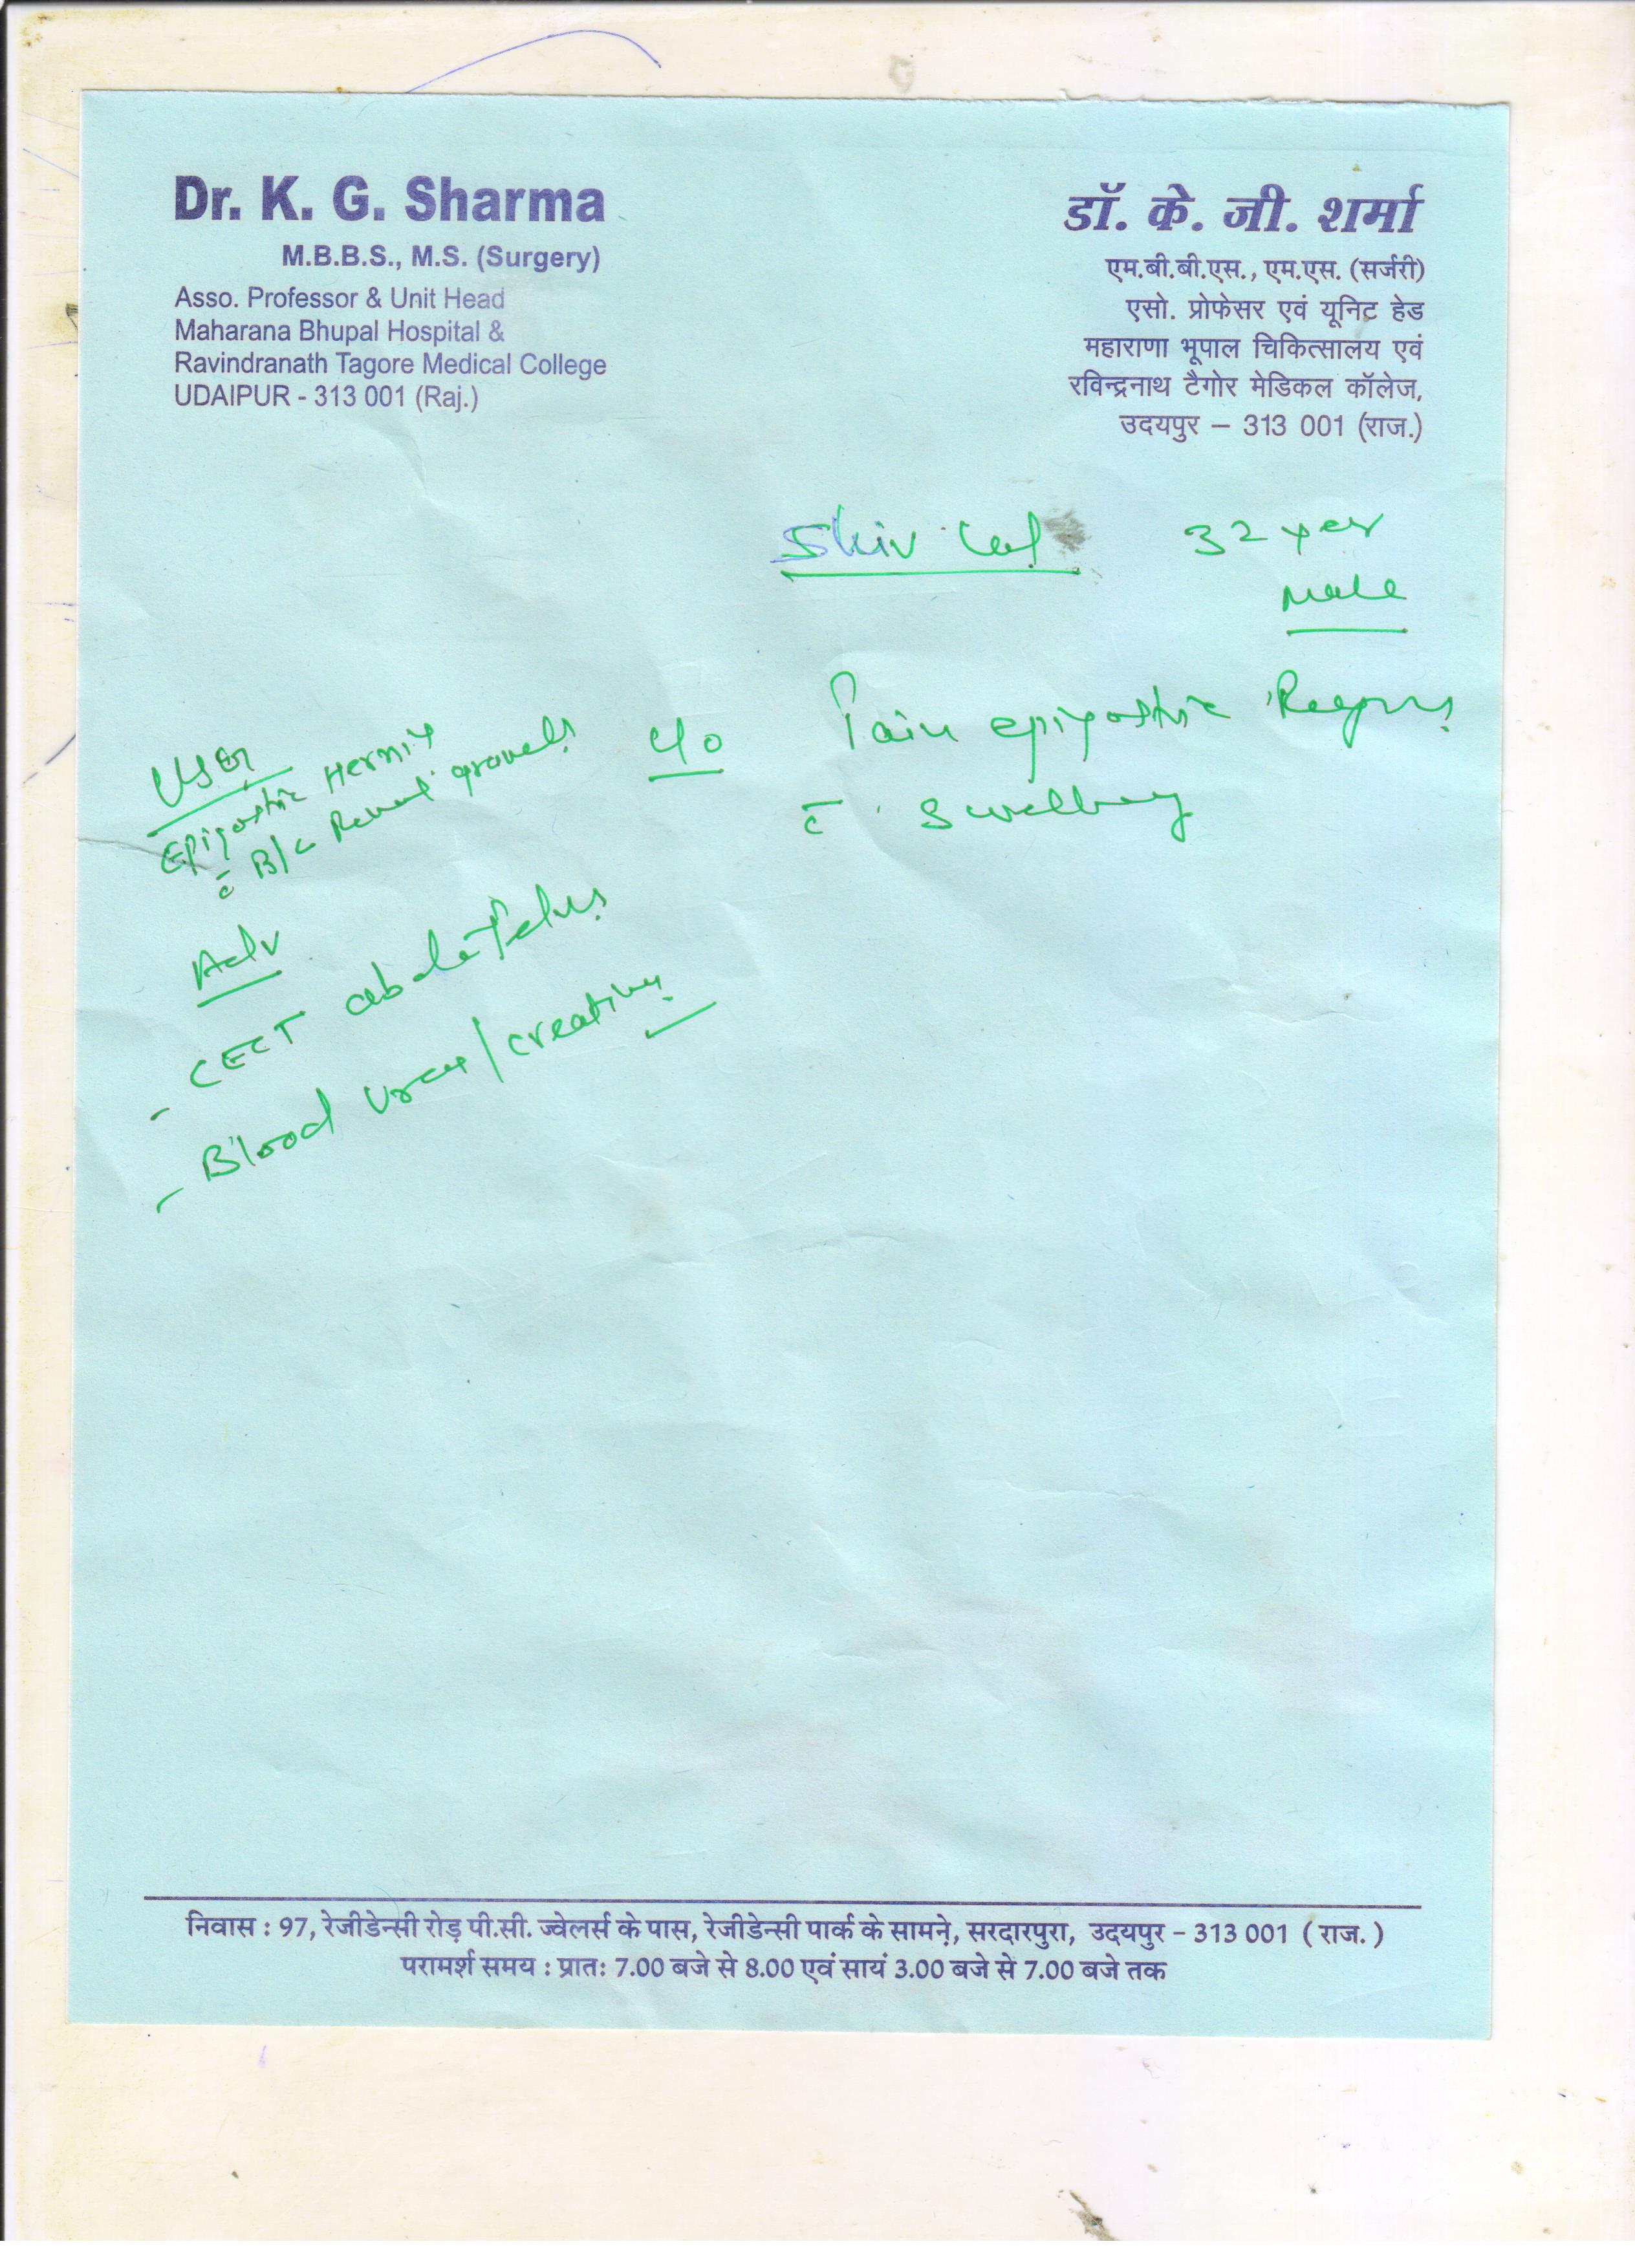 Dr. K. G. Sharma
M.B.B.S., M.S. (Surgery)
Asso. Professor & Unit Head
Maharana Bhupal Hospital &
Ravindranath Tagore Medical College
UDAIPUR - 313 001 (Raj.)
डॉ. के. जी. शर्मा
एम.बी.बी.एस., एम.एस. (सर्जरी)
एसो. प्रोफेसर एवं यूनिट हेड
महाराणा भूपाल चिकित्सालय एवं
रविन्द्रनाथ टैगोर मेडिकल कॉलेज,
उदयपुर – 313 001 (राज.)
Shiv Lal 32 year
Male
C/o Pain epigastric Region
c̄ Swelling
USG
Epigastric Hernia
c̄ B/L Renal gravels
Adv
- CECT abdo Pelvis
- Blood Urea/creatinine
निवास : 97, रेजीडेन्सी रोड़ पी.सी. ज्वेलर्स के पास, रेजीडेन्सी पार्क के सामने, सरदारपुरा, उदयपुर – 313 001 ( राज. )
परामर्श समय : प्रातः 7.00 बजे से 8.00 एवं सायं 3.00 बजे से 7.00 बजे तक